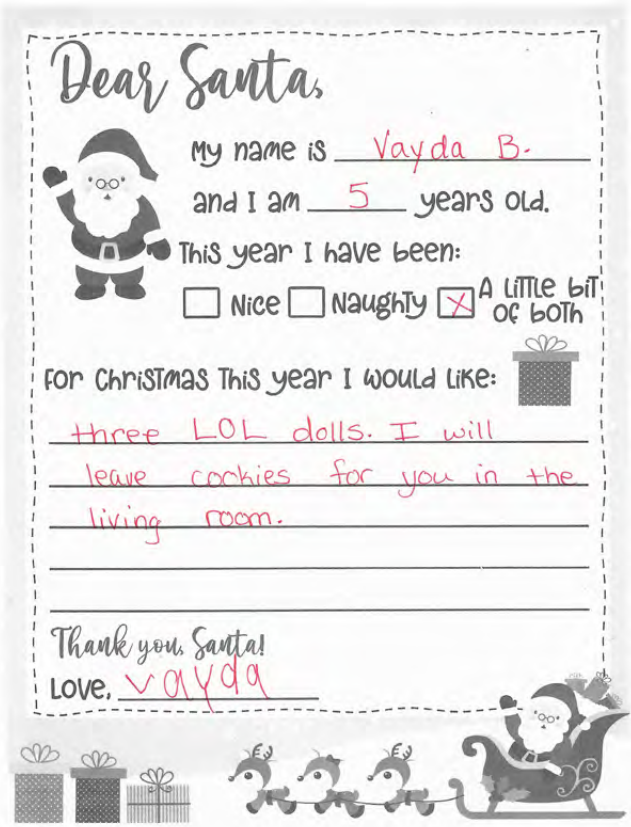 Dear Santa,
My name is Vayda B.
and I am 5 years old.
This year I have been:
Nice Naughty X A little bit of both
For Christmas this year I would like:
three LOL dolls. I will
leave cookies for you in the
living room.
Thank you, Santa!
Love, Vayda